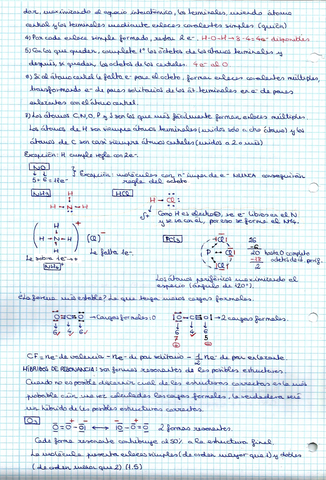 dor, maximizando el espacio interatómico, los terminales, uniendo átomo
central y los terminales mediante enlaces covalentes simples (guión)
4) Por cada enlace simple formado, restar 2 e⁻. H-O-H → 8-4=4e⁻ disponibles
5) Con los que queden, completar 1º los octetos de los átomos terminales y
después, si quedan, los octetos de los centrales. 4e⁻ al O
6) Si al átomo central le falta e⁻ para el octeto, formar enlaces covalentes múltiples,
transformando e⁻ de pares solitarios de los át. terminales en e⁻ de pares
enlazantes con el átomo central.
7) Los átomos C, N, O, P y S son los que más fácilmente forman enlaces múltiples.
Los átomos de H son siempre átomos terminales (unidos solo a otro átomo) y los
átomos de C son casi siempre átomos centrales (unidos a 2 o más)
Excepción: H cumple regla con 2e⁻.
NO
5+6=11e⁻ Excepción: moléculas con nº impar de e⁻ NUNCA conseguirán
regla del octeto
NH₃ HCl
H H - Cl
H - N - H (Cl)⁻
H
Le falta 1e⁻.
Le sobra 1e⁻
PCl₃
26
-6
20
-18
2
Los átomos periféricos maximizando el
espacio (ángulo de 120º).
¿La forma más estable? La que tenga menos cargas formales.
O=C=O → Cargas formales: 0 O-C≡O → 2 cargas formales.
6 4 6 6 4 6
6 4 6 7 4 5
C.F = Nº e⁻ de valencia - Nº e⁻ de par solitario - ½ Nº e⁻ de par enlazante.
HÍBRIDOS DE RESONANCIA: son formas resonantes de las posibles estructuras.
Cuando no es posible discernir cuál de las estructuras correctas es la más
probable aún una vez calculadas las cargas formales, la verdadera será
un híbrido de las posibles estructuras correctas.
O₃
O=O-O ⟷ O-O=O 2 formas resonantes.
Cada forma resonante contribuye al 50% a la estructura final.
La molécula presenta enlaces simples (de orden mayor que 1) y dobles
(de orden menor que 2) (1.5)